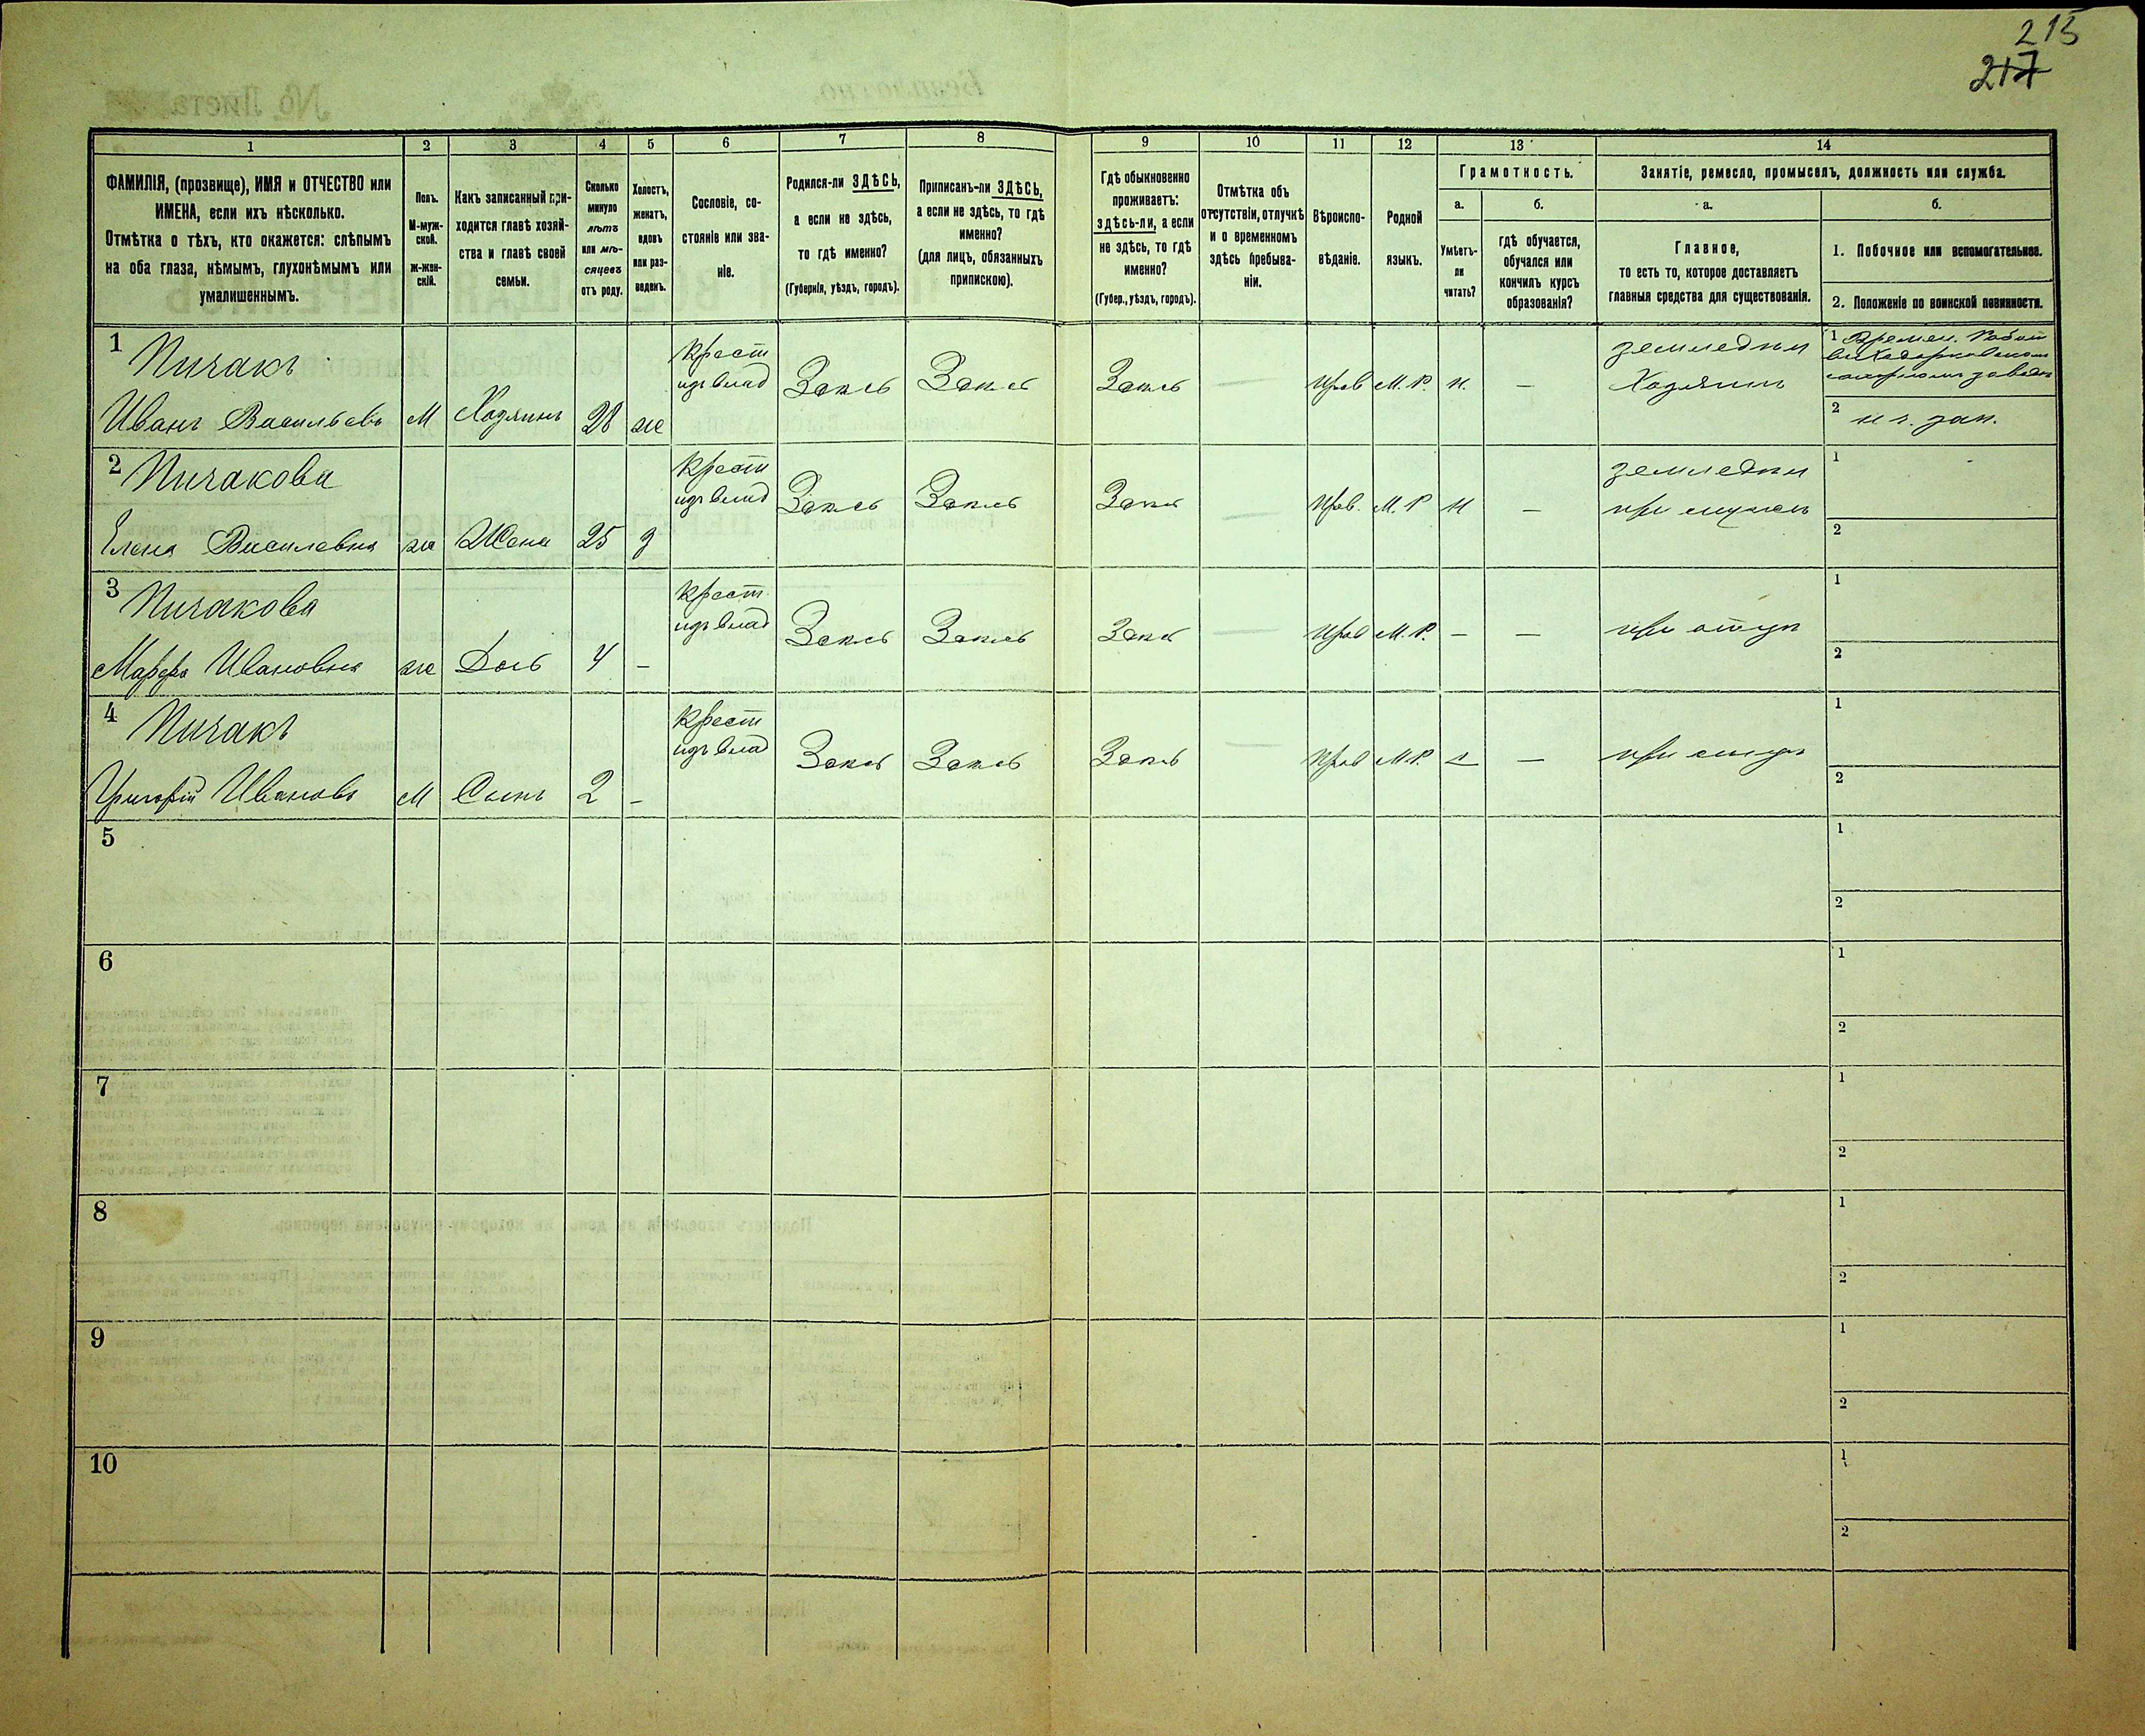 215
217
1
2
3
4
5
6
7
8
9
10
11
12
13
14
ФАМИЛІЯ, (прозвище), ИМЯ и ОТЧЕСТВО или
ИМЕНА, если ихъ нѣсколько.
Отмѣтка о тѣхъ, кто окажется: слѣпымъ
на оба глаза, нѣмымъ, глухонѣмымъ или
умалишеннымъ.
Полъ.
М-муж-
ской.
ж-жен-
скій.
Какъ записанный при-
ходится главѣ хозяй-
ства и главѣ своей
семьи.
Сколько
минуло
лѣтъ
или мѣ-
сяцевъ
отъ роду.
Холостъ,
женатъ,
вдовъ
или раз-
веденъ.
Сословіе, со-
стояніе или зва-
ніе.
Родился-ли ЗДѢСЬ,
а если не здѣсь,
то гдѣ именно?
(Губернія, уѣздъ, городъ).
Приписанъ-ли ЗДѢСЬ,
а если не здѣсь, то гдѣ
именно?
(для лицъ, обязанныхъ
припискою).
Гдѣ обыкновенно
проживаетъ:
здѣсь-ли, а если
не здѣсь, то гдѣ
именно?
(Губер., уѣздъ, городъ).
Отмѣтка объ
отсутствіи, отлучкѣ
и о временномъ
здѣсь пребыва-
ніи.
Вѣроиспо-
вѣданіе.
Родной
языкъ.
Грамотность.
а.
Умѣетъ-
ли
читать?
б.
гдѣ обучается,
обучался или
кончилъ курсъ
образованія?
Занятіе, ремесло, промыселъ, должность или служба.
а.
Главное,
то есть то, которое доставляетъ
главныя средства для существованія.
б.
1. Побочное или вспомогательное.
2. Положеніе по воинской повинности.
1 Пичакъ
Иванъ Васильевъ М Хозяинъ 28 же
Крест
изъ влад
Здесь Здесь Здесь — Прав М. Р. н. —
земледел
Хозяинъ
1 Времен. Работ
заводе
2
2 Пичакова
Елена Василевна же Жена 25 з
Крест
изъ влад
Здесь Здесь Здесь — Прав. М. Р н —
земледел
при
1
2
3 Пичакова
Марфа Ивановна же Дочь 4 —
Крест
изъ влад
Здесь Здесь Здесь — Прав М. Р. — —
при отце
1
2
4 Пичакъ
Григорій Ивановъ М Сынъ 2 —
Крест
изъ влад
Здесь Здесь Здесь — Прав М. Р. —
при
1
2
5
1
2
6
1
2
7
1
2
8
1
2
9
1
2
10
1
2